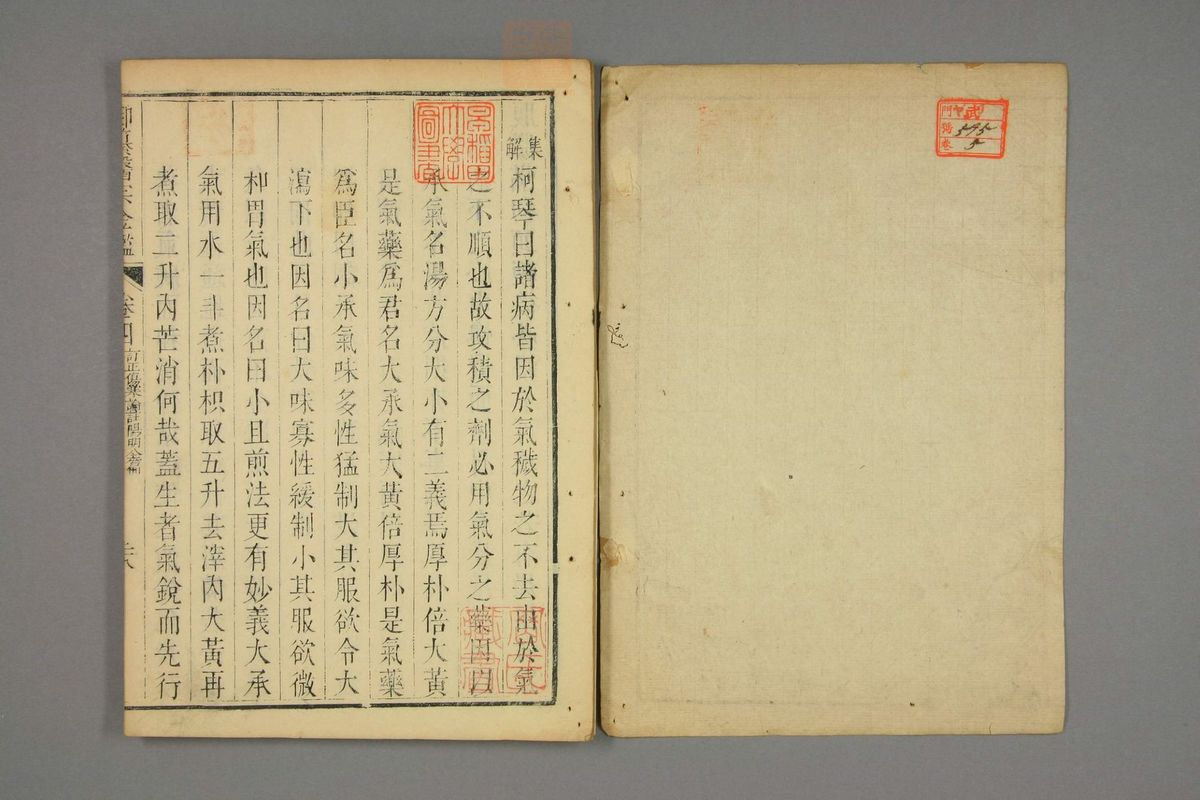 門 ヤ 武
號 595
卷 5
集解
柯琴曰諸病皆因於氣穢物之不去由於氣
之不順也故攻積之劑必用氣分之藥因以
承氣名湯方分大小有二義焉厚朴倍大黃
是氣藥爲君名大承氣大黃倍厚朴是氣藥
爲臣名小承氣味多性猛制大其服欲令大
瀉下也因名曰大味寡性緩制小其服欲微
和胃氣也因名曰小且煎法更有妙義大承
氣用水一斗煮朴枳取五升去滓內大黃再
煮取二升內芒消何哉蓋生者氣銳而先行
御纂醫宗金鑑
卷四
訂正傷寒論註陽明全篇